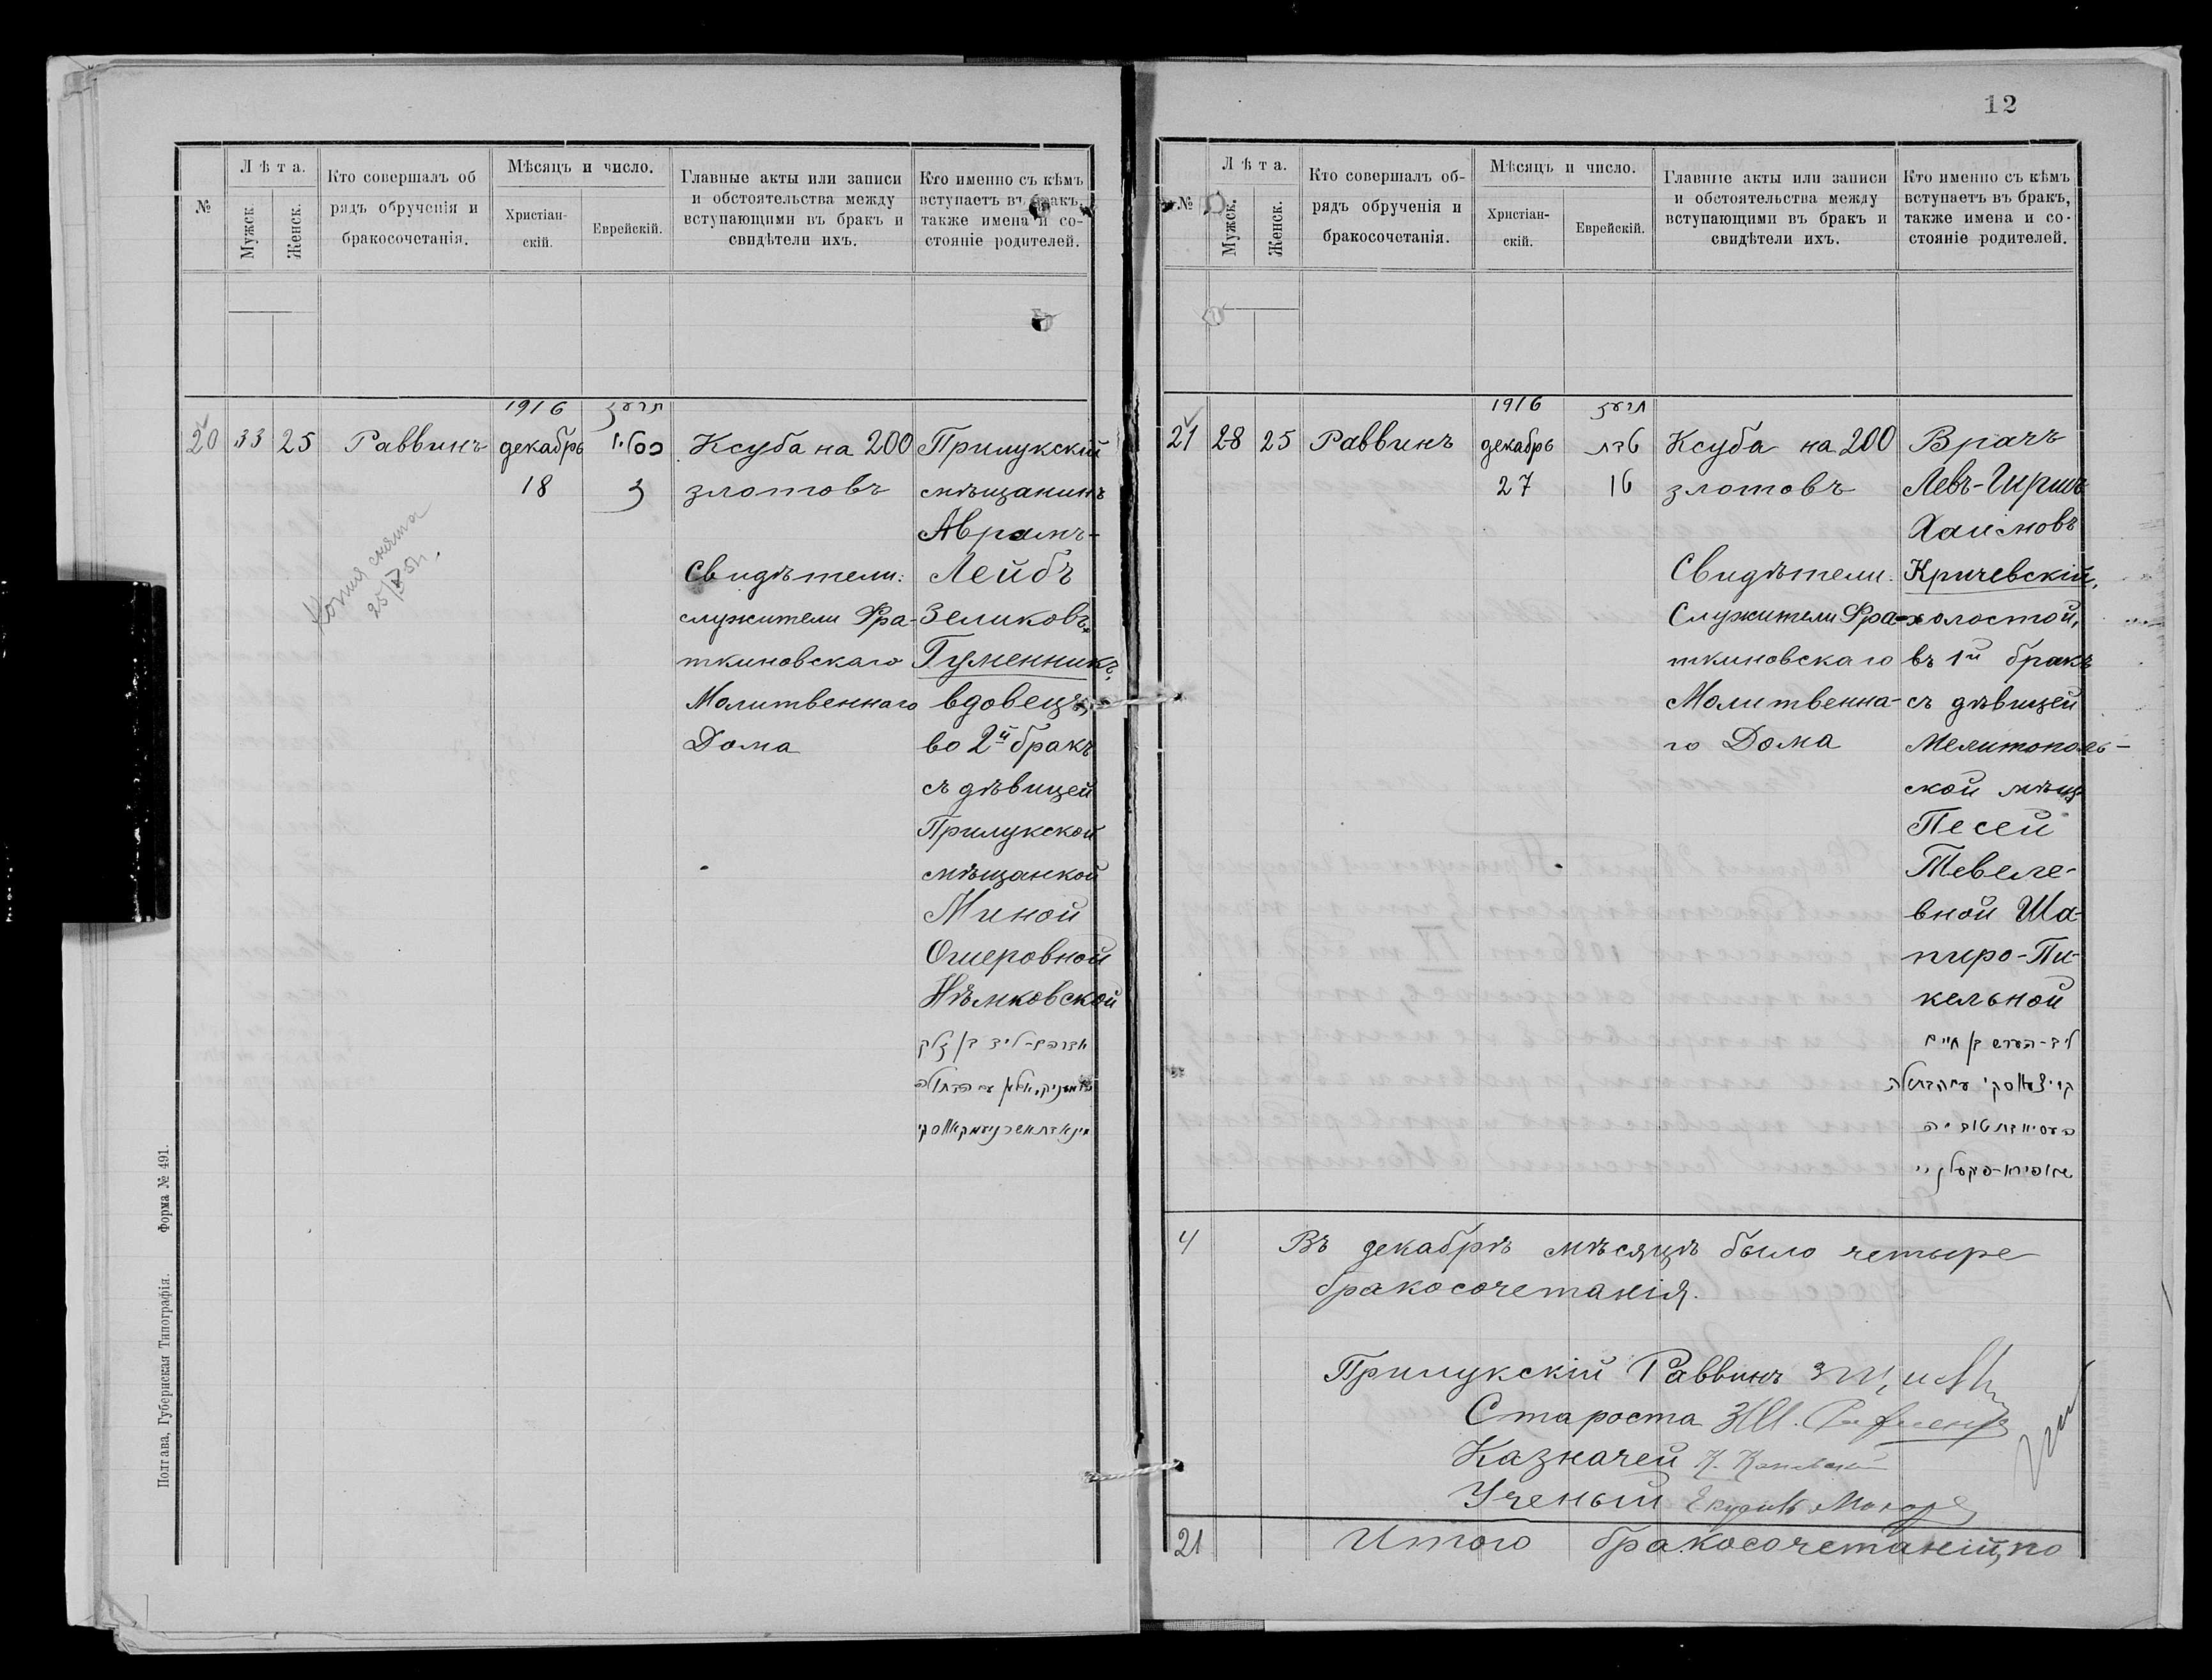 №
Лѣта.
Мужск.
Женск.
Кто совершалъ об
рядъ обрученія и
бракосочетанія.
Мѣсяцъ и число.
Христіан-
скій.
Еврейскій.
Главные акты или записи
и обстоятельства между
вступающими въ бракъ и
свидѣтели ихъ.
Кто именно съ кѣмъ
вступаетъ въ бракъ,
также имена и со-
стояніе родителей.
20
33
25
Раввинъ
1916
декабрь
18
תרעז
כסליו
Ксуба на 200
злотовъ
Свидѣтели:
служители Фра-
ткиновскаго
Молитвеннаго
Дома
Прилукскій
мѣщанинъ
Аврамъ-
Лейбъ
Зеликовъ
Гуменникъ,
вдовецъ,
во 2й бракъ
съ дѣвицей
Прилукской
мѣщанкой
Миной
Ошеровной
Нѣмковской
Копия снята
Полтава, Губернская Типографія. Форма № 491.
12
№
Лѣта.
Мужск.
Женск.
Кто совершалъ об-
рядъ обрученія и
бракосочетанія.
Мѣсяцъ и число.
Христіан-
скій.
Еврейскій.
Главные акты или записи
и обстоятельства между
вступающими въ бракъ и
свидѣтели ихъ.
Кто именно съ кѣмъ
вступаетъ въ бракъ,
также имена и со-
стояніе родителей.
21
28
25
Раввинъ
1916
декабрь
27
תרעז
טבת
16
Ксуба на 200
злотовъ
Свидѣтели.
Служители Фра-
ткиновскаго
Молитвенна-
го Дома
Врачъ
Левъ-Гиршъ
Хаимовъ
Кричевскій,
холостой,
въ 1й бракъ
съ дѣвицей
Мелитополь-
ской мѣщ.
Песей
Тевеле-
вной Ша-
пиро-Пи-
кельной
4
Въ декабрѣ мѣсяцѣ было четыре
бракосочетанія.
Прилукскій Раввинъ
Староста
Казначей
Ученый
21
Итого бракосочетаній, по